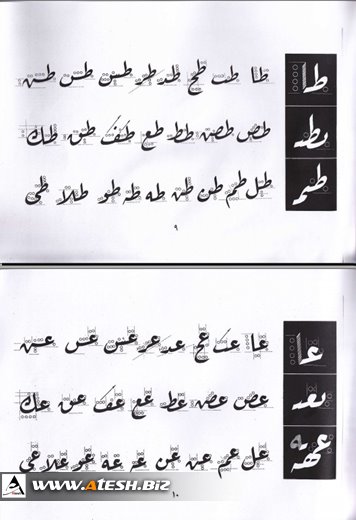 طا
طا طب طح طد طر طس طس طس
بطد
طص طص طط طع طف طق طك
طل طم طن طن طه طه طو طلا طى
٩
عا
عا عب عح عد عر عس عس عس
بعد
عص عص عط عع عف عق عك
عل عم عن عن عه عه عو علا عى
١٠
www.ATESH.BIZ